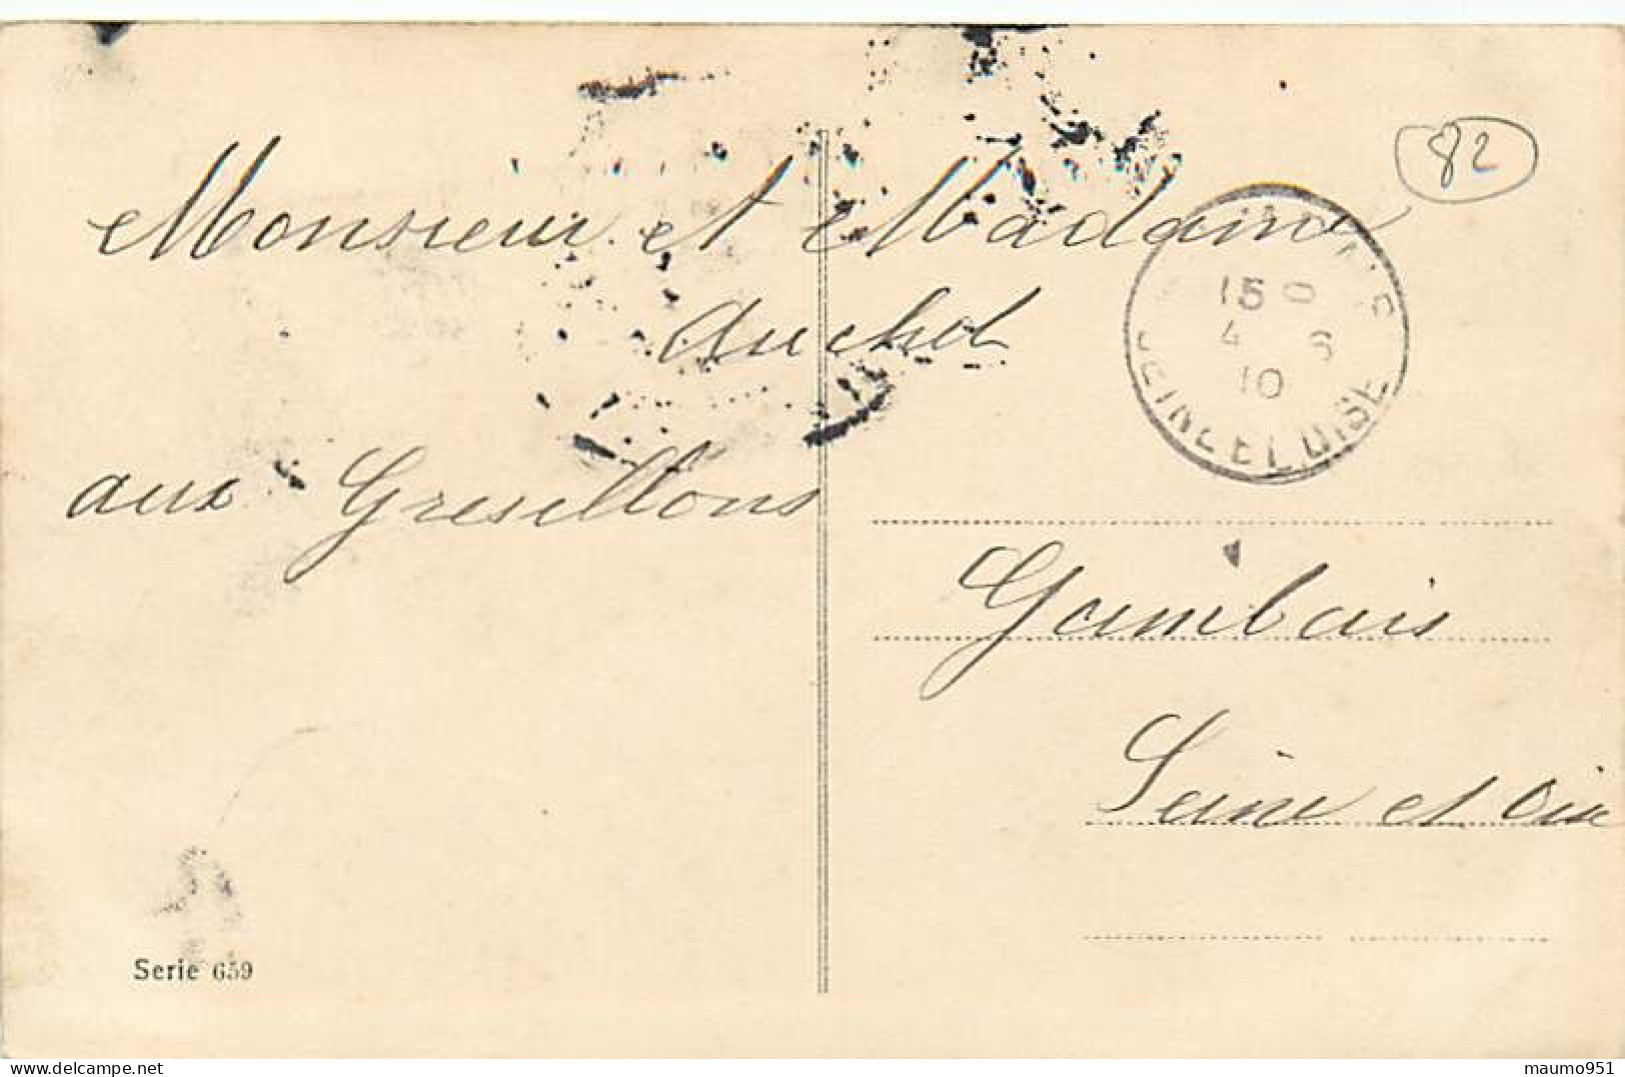 82
Monsieur et Madame
Auchel
aux Gresillons
15
4 6
10
SEINE ET OISE
Gambais
Seine et Oise
Serie 659
maumo951